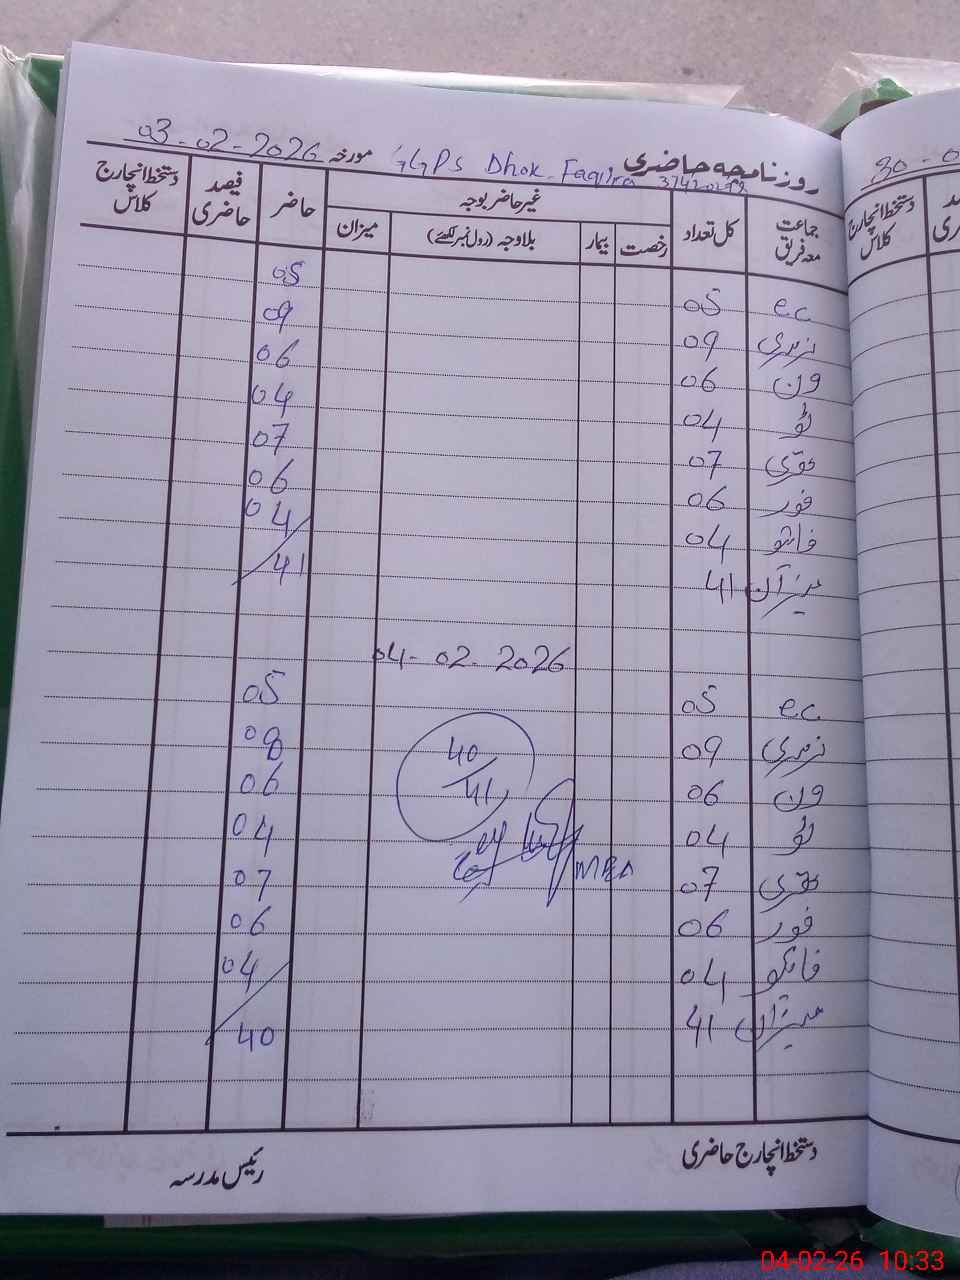 روزنامچہ حاضری GGPS Dhok Faqira مورخہ 03-02-2026
جماعت معہ فریق کل تعداد غیر حاضر بوجہ حاضر فیصد حاضری دستخط انچارج کلاس
رخصت بیمار بلاوجہ (رول نمبر لکھئے) میزان
ec 05 05
نرسری 09 09
ون 06 06
ٹو 04 04
تھری 07 07
فور 06 06
فائیو 04 04
میزان 41 41
04-02-2026
ec 05 05
نرسری 09 08
ون 06 06
ٹو 04 04
تھری 07 07
فور 06 06
فائیو 04 04
میزان 41 40
40
41
MEA
دستخط انچارج حاضری رئیس مدرسہ
30-0
دستخط انچارج کلاس
04-02-26 10:33